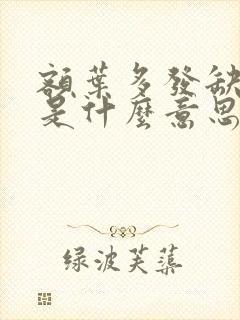 額葉多發缺
是什麼意思
绿波芙蕖